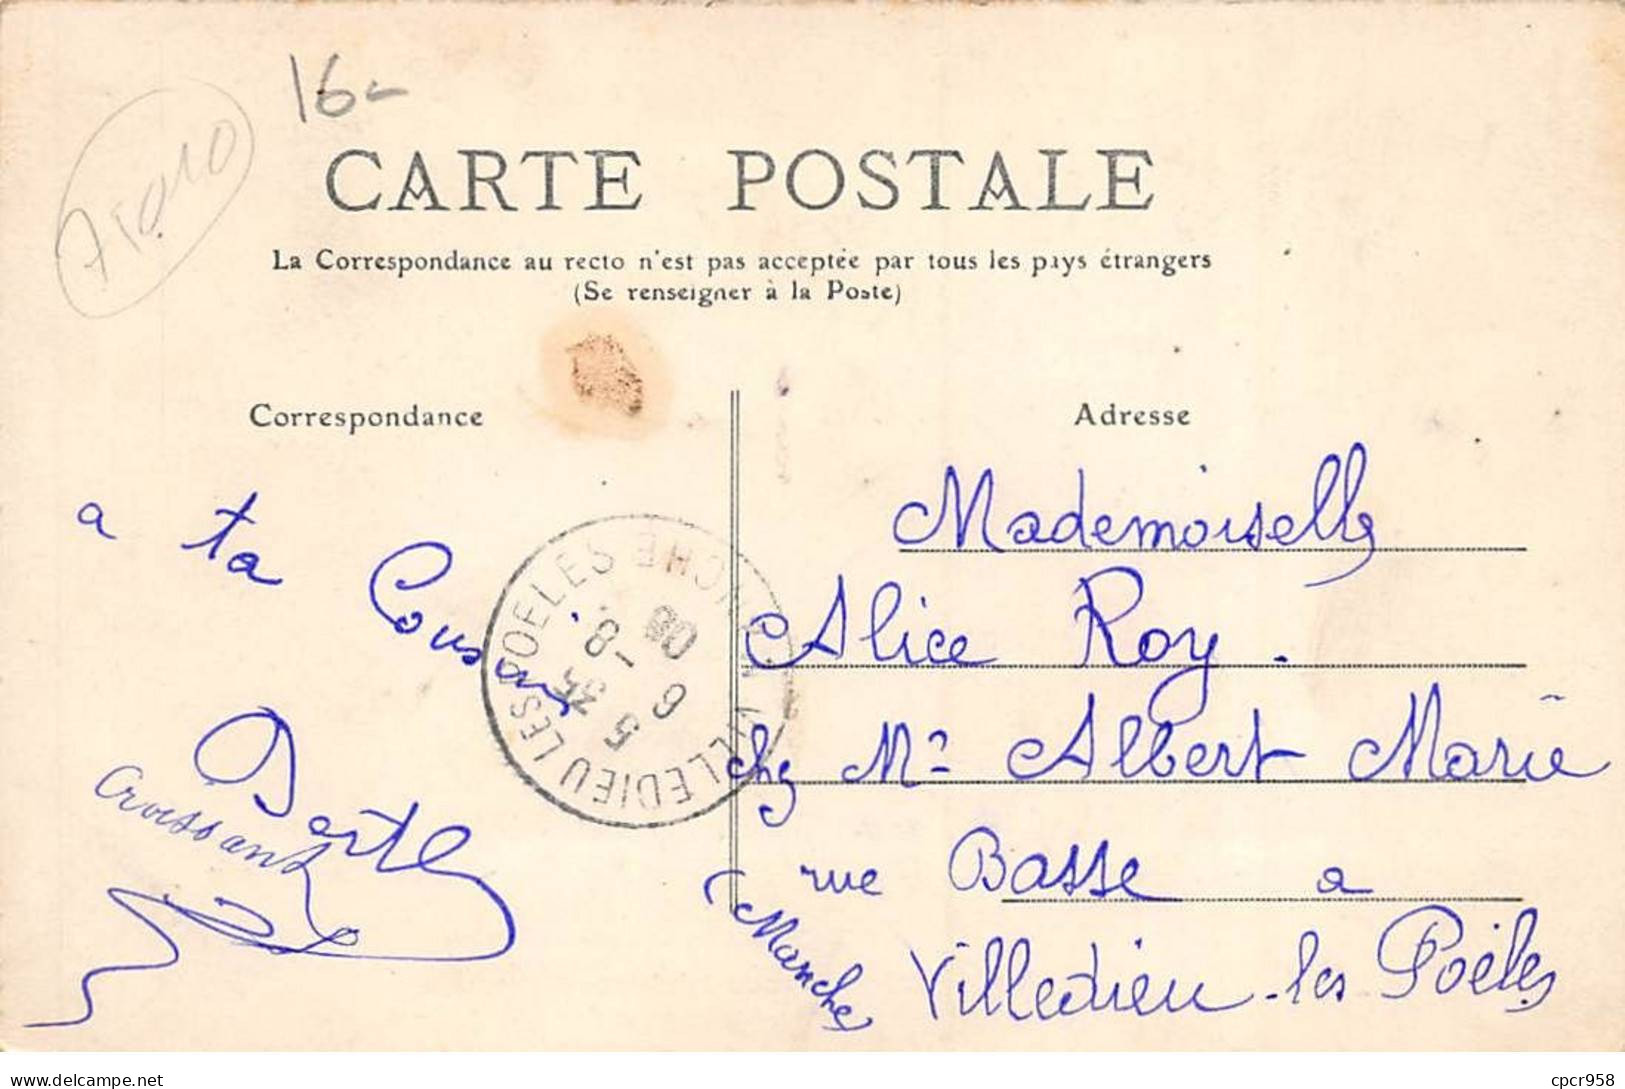 16-
75010
CARTE POSTALE
La Correspondance au recto n'est pas acceptée par tous les pays étrangers
(Se renseigner à la Poste)
Correspondance
Adresse
a ta Cousine
Berthe
Croissant
Mademoiselle
Alice Roy.
chez Mr Albert Marie
rue Basse a
Villedieu-les Poëles
(Manche
VILLEDIEU LES POELES MANCHE
8 -9 08
delcampe.net
cpcr958